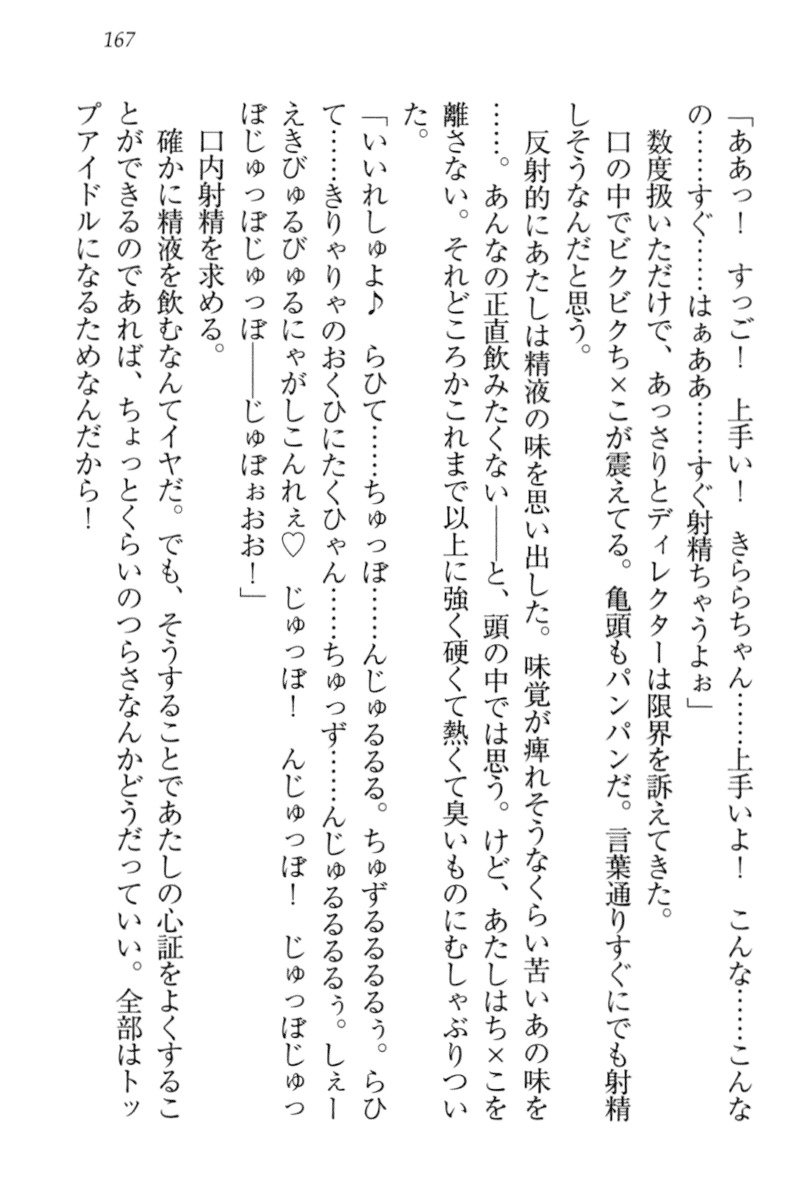 167
「ああっ！　すっご！　上手い！　きららちゃん……上手いよ！　こんな……こんな
の……すぐ……はぁああ……すぐ射精ちゃうよぉ」
　数度扱いただけで、あっさりとディレクターは限界を訴えてきた。
　口の中でビクビクち×こが震えてる。亀頭もパンパンだ。言葉通りすぐにでも射精
しそうなんだと思う。
　反射的にあたしは精液の味を思い出した。味覚が痺れそうなくらい苦いあの味を
……。あんなの正直飲みたくない――と、頭の中では思う。けど、あたしはち×こを
離さない。それどころかこれまで以上に強く硬くて熱くて臭いものにむしゃぶりつい
た。
「いいれしゅよ♪　らひて……ちゅっぽ……んじゅるるる。ちゅずるるるるぅ。らひ
て……きりゃりゃのおくひにたくひゃん……ちゅっず……んじゅるるるるぅ。しぇー
えきびゅるびゅるにゃがしこんれぇ♡　じゅっぽ！　んじゅっぽ！　じゅっぽじゅっ
ぽじゅっぽじゅっぽ――じゅぽぉおお！」
　口内射精を求める。
　確かに精液を飲むなんてイヤだ。でも、そうすることであたしの心証をよくするこ
とができるのであれば、ちょっとくらいのつらさなんかどうだっていい。全部はトッ
プアイドルになるためなんだから！